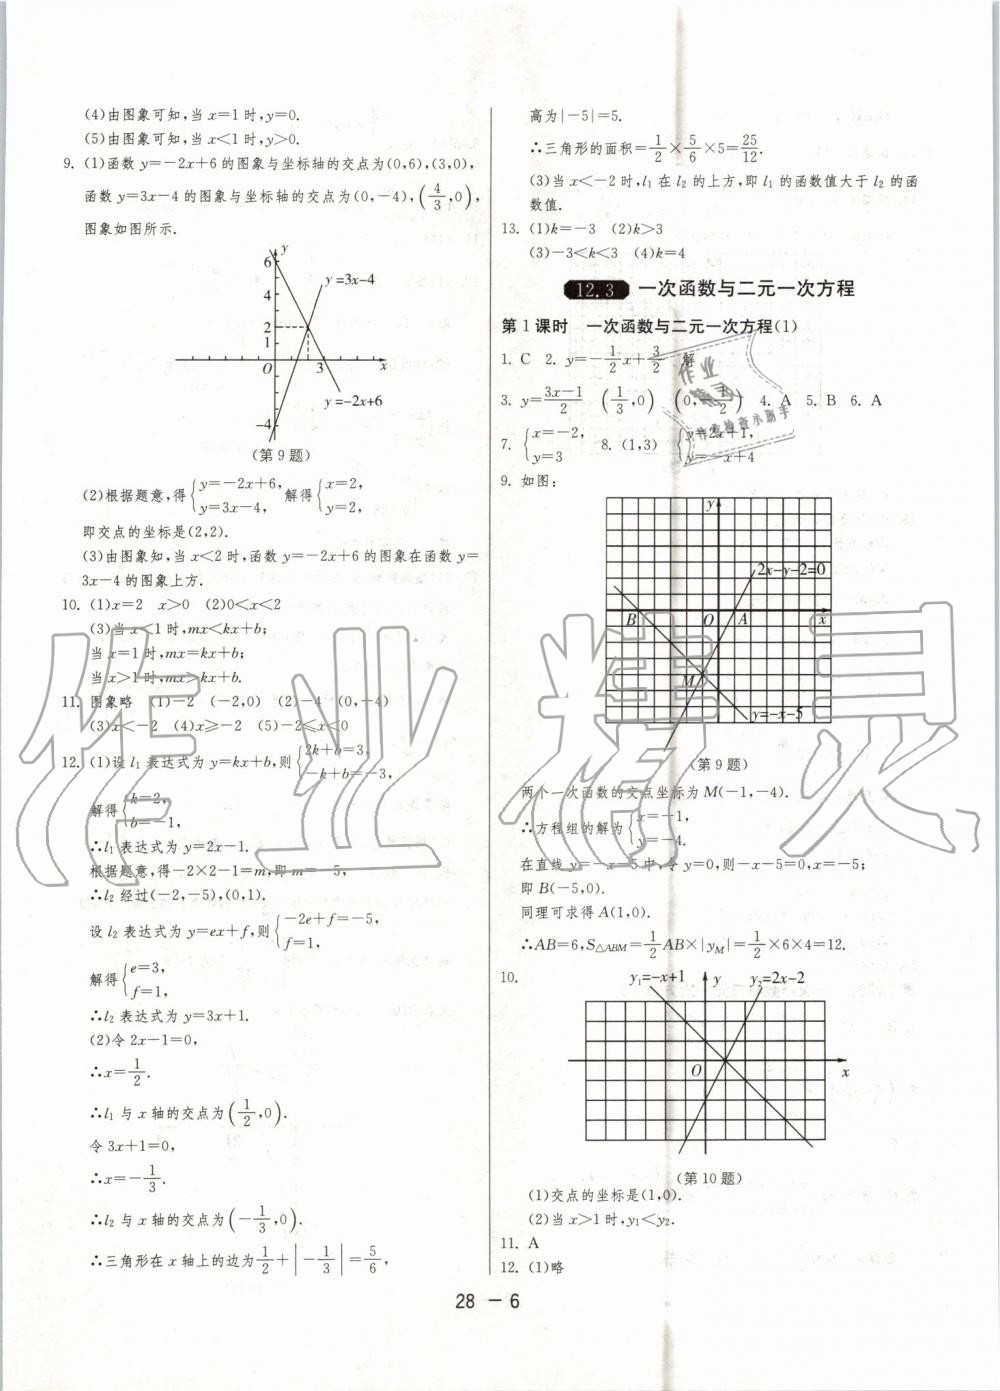 (4)由图象可知,当 x=1 时,y=0.
(5)由图象可知,当 x<1 时,y>0.
9. (1)函数 y=-2x+6 的图象与坐标轴的交点为(0,6),(3,0),
函数 y=3x-4 的图象与坐标轴的交点为(0,-4),(4/3,0),
图象如图所示.
y
6
4
2
O
3
x
-4
y=3x-4
y=-2x+6
(第 9 题)
(2)根据题意,得{y=-2x+6, y=3x-4, 解得{x=2, y=2,
即交点的坐标是(2,2).
(3)由图象知,当 x<2 时,函数 y=-2x+6 的图象在函数 y=
3x-4 的图象上方.
10. (1)x=2 x>0 (2)0<x<2
(3)当 x<1 时,mx<kx+b;
当 x=1 时,mx=kx+b;
当 x>1 时,mx>kx+b.
11. 图象略 (1)-2 (-2,0) (2)-4 (0,-4)
(3)x<-2 (4)x≥-2 (5)-2≤x≤0
12. (1)设 l₁ 表达式为 y=kx+b,则{2k+b=3, -k+b=-3,
解得{k=2, b=-1,
∴l₁ 表达式为 y=2x-1.
根据题意,得-2×2-1=m,即 m=-5,
∴l₂ 经过(-2,-5),(0,1).
设 l₂ 表达式为 y=ex+f,则{-2e+f=-5, f=1,
解得{e=3, f=1,
∴l₂ 表达式为 y=3x+1.
(2)令 2x-1=0,
∴x=1/2.
∴l₁ 与 x 轴的交点为(1/2,0).
令 3x+1=0,
∴x=-1/3.
∴l₂ 与 x 轴的交点为(-1/3,0).
∴三角形在 x 轴上的边为1/2+|-1/3|=5/6,
高为|-5|=5.
∴三角形的面积=1/2×5/6×5=25/12.
(3)当 x<-2 时,l₁ 在 l₂ 的上方,即 l₁ 的函数值大于 l₂ 的函
数值.
13. (1)k=-3 (2)k>3
(3)-3<k<3 (4)k=4
12.3 一次函数与二元一次方程
第 1 课时 一次函数与二元一次方程(1)
1. C 2. y=-1/2x+3/2 解
3. y=(3x-1)/2 (1/3,0) (0,-1/2) 4. A 5. B 6. A
7. {x=-2, y=3 8. (1,3) {y=2x+1, y=-x+4
9. 如图:
y
2x-y-2=0
B
O
A
x
M
y=-x-5
(第 9 题)
两个一次函数的交点坐标为 M(-1,-4).
∴方程组的解为{x=-1, y=-4.
在直线 y=-x-5 中,令 y=0,则-x-5=0,x=-5;
即 B(-5,0).
同理可求得 A(1,0).
∴AB=6,S△ABM=1/2AB×|yM|=1/2×6×4=12.
10.
y₁=-x+1
y
y₂=2x-2
O
x
(第 10 题)
(1)交点的坐标是(1,0).
(2)当 x>1 时,y₁<y₂.
11. A
12. (1)略
28 - 6
作业精灵